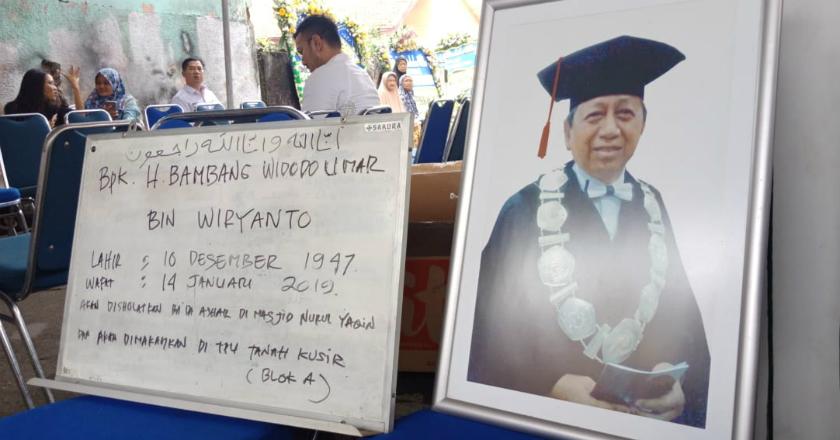 SAKURA
إنا لله وإنا إليه راجعون
Bpk. H. BAMBANG WIDODO UMAR
BIN WIRYANTO
LAHIR : 10 DESEMBER 1947.
WAFAT : 14 JANUARI 2019.
AKAN DISHOLATKAN BA'DA ASHAR DI MASJID NURUL YAQIN
DAN AKAN DIMAKAMKAN DI TPU TANAH KUSIR
(BLOK A)